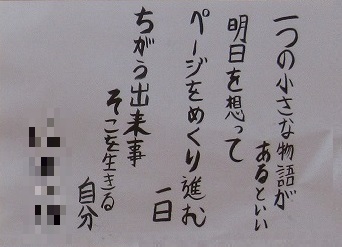 一つの小さな物語が
あるといい
明日を想って
ページをめくり進む
一日
ちがう出来事
そこを生きる
自分